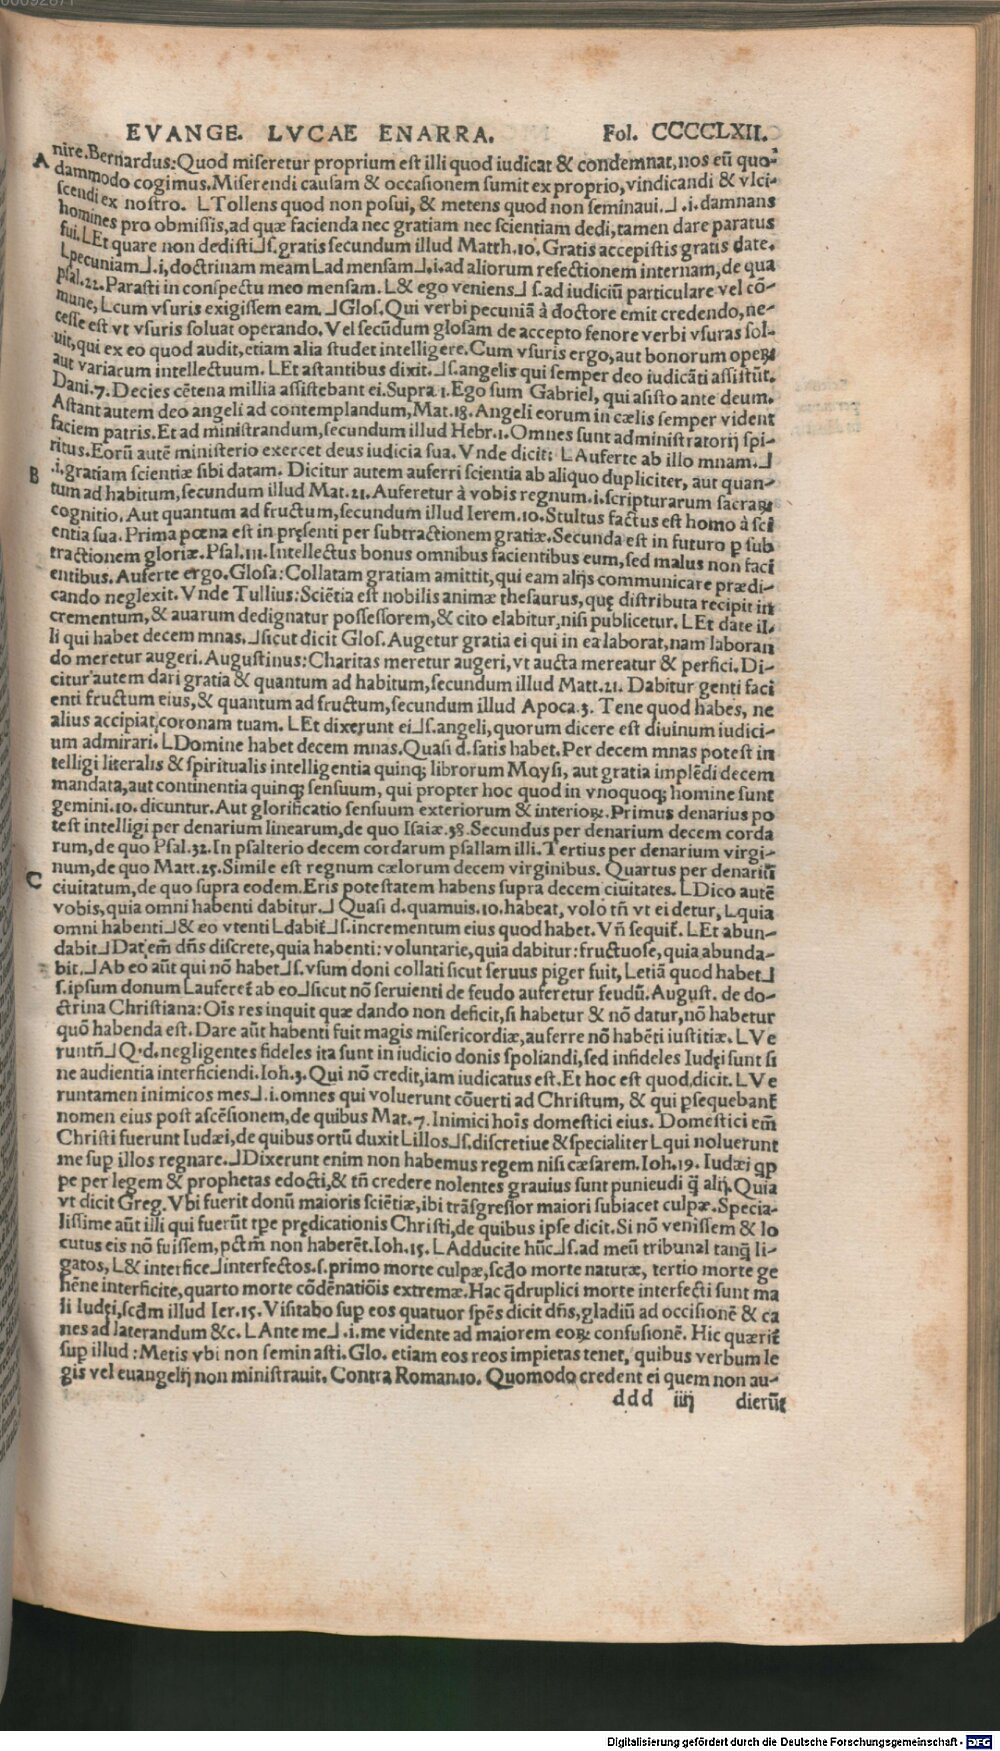 EVANGE. LVCAE ENARRA. Fol. CCCCCLXII.
A nire. Bernardus: Quod miseretur proprium est illi quod iudicat & condemnat, nos eū quo-
dammodo cogimus. Miserendi causam & occasionem sumit ex proprio, vindicandi & vlci-
scendi ex nostro. LTollens quod non posui, & metens quod non seminaui.⅃ .i. damnans
homines pro obmissis, ad quæ facienda nec gratiam nec scientiam dedi, tamen dare paratus
fui. LEt quare non dedisti⅃s. gratis secundum illud Matth. 10. Gratis accepistis gratis date.
Lpecuniam⅃. i, doctrinam meam Lad mensam⅃. i. ad aliorum refectionem internam, de qua
psal. 22. Parasti in conspectu meo mensam. L& ego veniens⅃ s. ad iudiciū particulare vel cō-
mune, Lcum vsuris exigissem eam.⅃Glos. Qui verbi pecuniā à doctore emit credendo, ne-
cesse est vt vsuris soluat operando. Vel secūdum glosam de accepto fenore verbi vsuras sol-
uit, qui ex eo quod audit, etiam alia studet intelligere. Cum vsuris ergo, aut bonorum operꝝ
aut variarum intellectuum. LEt astantibus dixit.⅃s. angelis qui semper deo iudicāti assistūt.
Dani. 7. Decies cētena millia assistebant ei. Supra 1. Ego sum Gabriel, qui asisto ante deum.
Astant autem deo angeli ad contemplandum, Mat. 18. Angeli eorum in cælis semper vident
faciem patris. Et ad ministrandum, secundum illud Hebr. 1. Omnes sunt administratorij spi-
ritus. Eorū autē ministerio exercet deus iudicia sua. Vnde dicit: LAuferte ab illo mnam.⅃
B .i. gratiam scientiæ sibi datam. Dicitur autem auferri scientia ab aliquo dupliciter, aut quan-
tum ad habitum, secundum illud Mat. 21. Auferetur à vobis regnum. i. scripturarum sacraꝝ
cognitio. Aut quantum ad fructum, secundum illud Ierem. 10. Stultus factus est homo à sci
entia sua. Prima pœna est in pręsenti per subtractionem gratiæ. Secunda est in futuro ꝑ sub
tractionem gloriæ. Psal. 111. Intellectus bonus omnibus facientibus eum, sed malus non faci
entibus. Auferte ergo. Glosa: Collatam gratiam amittit, qui eam alijs communicare prædi-
cando neglexit. Vnde Tullius: Sciētia est nobilis animæ thesaurus, quę distributa recipit in
crementum, & auarum dedignatur possessorem, & cito elabitur, nisi publicetur. LEt date il-
li qui habet decem mnas.⅃sicut dicit Glos. Augetur gratia ei qui in ea laborat, nam laboran
do meretur augeri. Augustinus: Charitas meretur augeri, vt aucta mereatur & perfici. Di-
citur autem dari gratia & quantum ad habitum, secundum illud Matt. 21. Dabitur genti faci
enti fructum eius, & quantum ad fructum, secundum illud Apoca. 3. Tene quod habes, ne
alius accipiat coronam tuam. LEt dixerunt ei⅃s. angeli, quorum dicere est diuinum iudici-
um admirari. LDomine habet decem mnas. Quasi d. satis habet. Per decem mnas potest in
telligi literalis & spiritualis intelligentia quinqꝫ librorum Moysi, aut gratia implēdi decem
mandata, aut continentia quinqꝫ sensuum, qui propter hoc quod in vnoquoqꝫ homine sunt
gemini. 10. dicuntur. Aut glorificatio sensuum exteriorum & interioꝝ. Primus denarius po
test intelligi per denarium linearum, de quo Isaiæ. 38. Secundus per denarium decem corda
rum, de quo Psal. 32. In psalterio decem cordarum psallam illi. Tertius per denarium virgi-
num, de quo Matt. 25. Simile est regnum cælorum decem virginibus. Quartus per denariū
C ciuitatum, de quo supra eodem. Eris potestatem habens supra decem ciuitates. LDico autē
vobis, quia omni habenti dabitur.⅃ Quasi d. quamuis. 10. habeat, volo tñ vt ei detur, Lquia
omni habenti⅃& eo vtenti Ldabiť⅃s. incrementum eius quod habet. Vñ sequiť. LEt abun-
dabit⅃Dat em̄ dñs discrete, quia habenti: voluntarie, quia dabitur: fructuose, quia abunda-
bit.⅃Ab eo aūt qui nō habet⅃s. vsum doni collati sicut seruus piger fuit, Letiā quod habet⅃
s. ipsum donum Laufereť ab eo⅃sicut nō seruienti de feudo auferetur feudū. August. de do-
ctrina Christiana: Oīs res inquit quæ dando non deficit, si habetur & nō datur, nō habetur
quō habenda est. Dare aūt habenti fuit magis misericordiæ, auferre nō habēti iustitiæ. LVe
runtñ⅃Q. d. negligentes fideles ita sunt in iudicio donis spoliandi, sed infideles Iudęi sunt si
ne audientia interficiendi. Ioh. 3. Qui nō credit, iam iudicatus est. Et hoc est quod, dicit. LVe
runtamen inimicos mes⅃. i. omnes qui voluerunt cōuerti ad Christum, & qui ꝑsequebanť
nomen eius post ascēsionem, de quibus Mat. 7. Inimici hoīs domestici eius. Domestici em̄
Christi fuerunt Iudæi, de quibus ortū duxit Lillos⅃s. discretiue & specialiter Lqui noluerunt
me suꝑ illos regnare.⅃Dixerunt enim non habemus regem nisi cæsarem. Ioh. 19. Iudæi qꝑ
pe per legem & prophetas edocti, & tñ credere nolentes grauius sunt punieudi q̃ alij. Quia
vt dicit Greg. Vbi fuerit donū maioris sciētiæ, ibi trāsgressor maiori subiacet culpæ. Specia-
lissime aūt illi qui fuerūt tꝑe prędicationis Christi, de quibus ipse dicit. Si nō venissem & lo
cutus eis nō fuissem, pctm̄ non haberēt. Ioh. 15. LAdducite hūc⅃s. ad meū tribunal tanq̃ li-
gatos, L& interfice⅃interfectos. s. primo morte culpæ, scđo morte naturæ, tertio morte ge
hēne interficite, quarto morte cōdēnatiōis extremæ. Hac q̃druplici morte interfecti sunt ma
li Iudęi, scđm illud Ier. 15. Visitabo suꝑ eos quatuor spēs dicit dñs, gladiū ad occisionē & ca
nes ad laterandum &c. LAnte me⅃. i. me vidente ad maiorem eoꝝ confusionē. Hic quæriť
suꝑ illud: Metis vbi non seminasti. Glo. etiam eos reos impietas tenet, quibus verbum le
gis vel euangelij non ministrauit. Contra Roman. 10. Quomodo credent ei quem non au-
ddd iiij dierūt
Digitalisierung gefördert durch die Deutsche Forschungsgemeinschaft - DFG